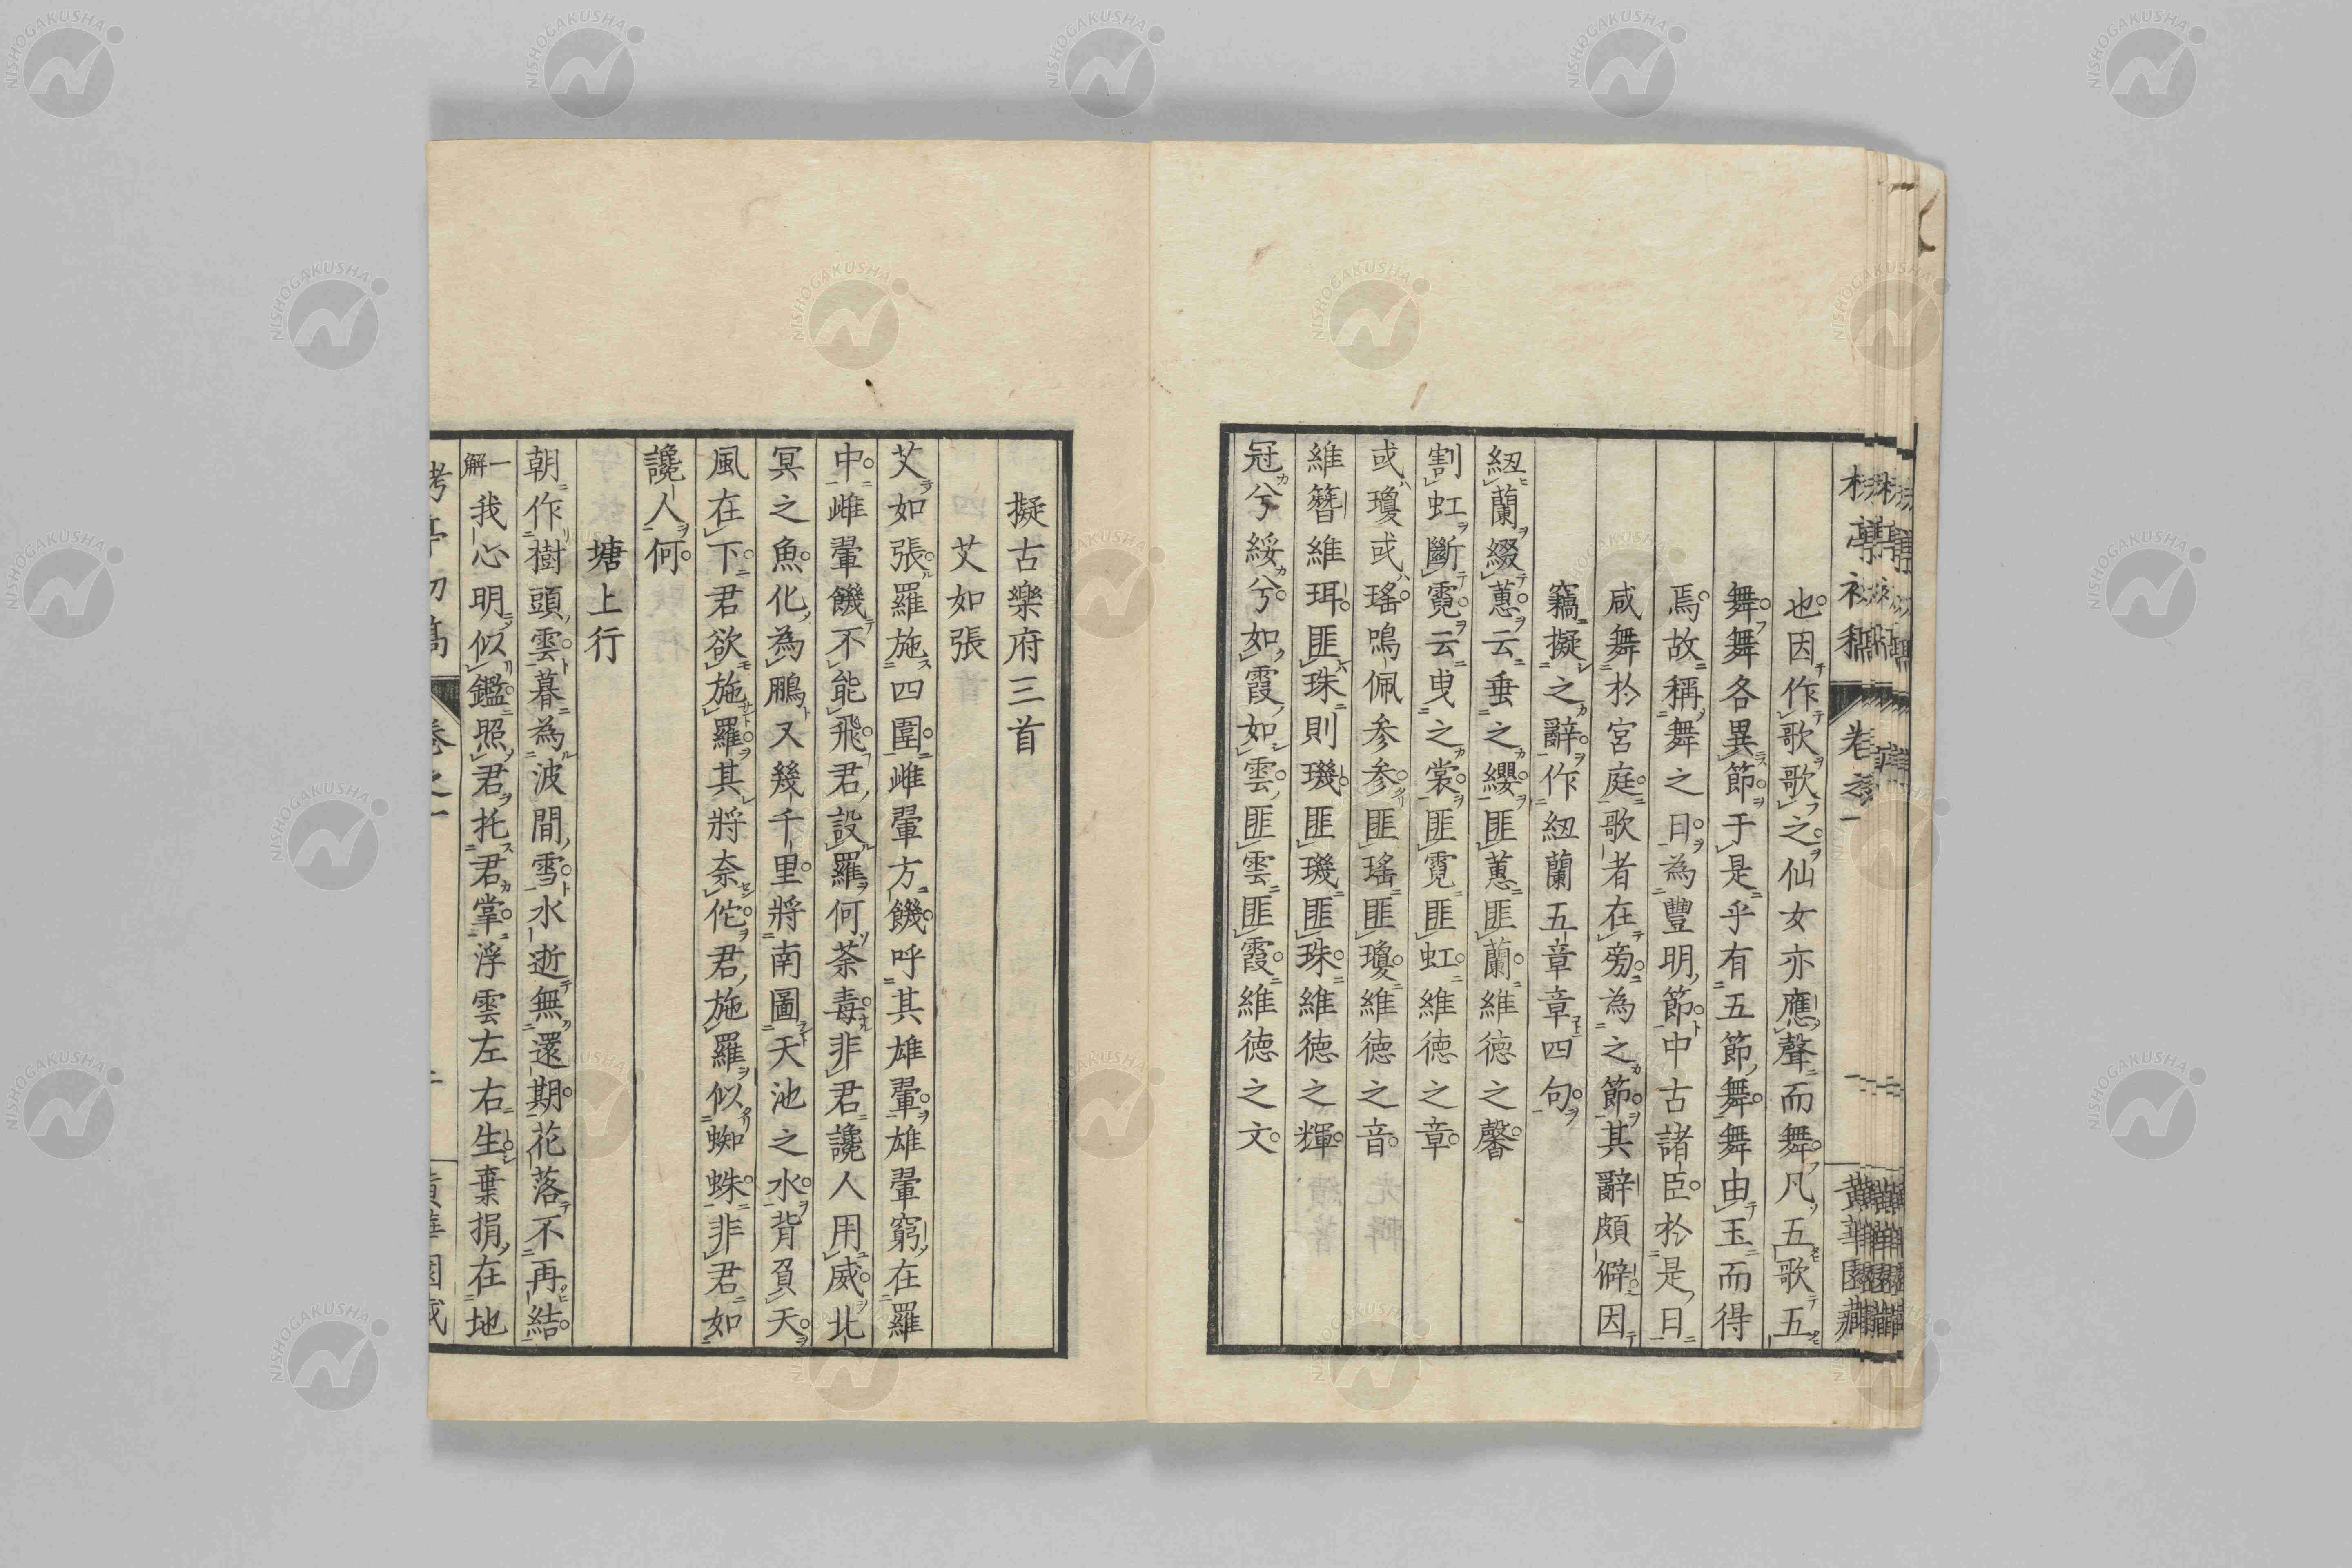 也因作歌歌之仙女亦應聲而舞凡五歌五
舞舞各異節于是乎有五節舞舞由玉而得
焉故稱舞之日為豐明節中古諸臣於是日
咸舞於宮庭歌者在旁為之節其辭頗僻因
竊擬之辭作紐蘭五章章四句
紐蘭綴蕙云垂之纓匪蕙匪蘭維德之馨
割虹斷霓云曳之裳匪霓匪虹維德之章
或瓊或瑤鳴佩参参匪瑤匪瓊維德之音
維簪維珥匪珠則璣匪璣匪珠維德之輝
冠兮綏兮如霞如雲匪雲匪霞維德之文
擬古樂府三首
艾如張
艾如張羅施四圍雌翬方饑呼其雄翬雄翬窮在羅
中雌翬饑不能飛君設羅何荼毒非君讒人用威北
冥之魚化為鵬又幾千里將南圖天池之水背負天
風在下君欲施羅其將奈佗君施羅似蜘蛛非君如
讒人何
塘上行
朝作樹頭雲暮為波間雪水逝無還期花落不再結
一解我心明似鑑照君托君掌浮雲左右生棄捐在地
卷之一
黄華園藏
NISHOGAKUSHA